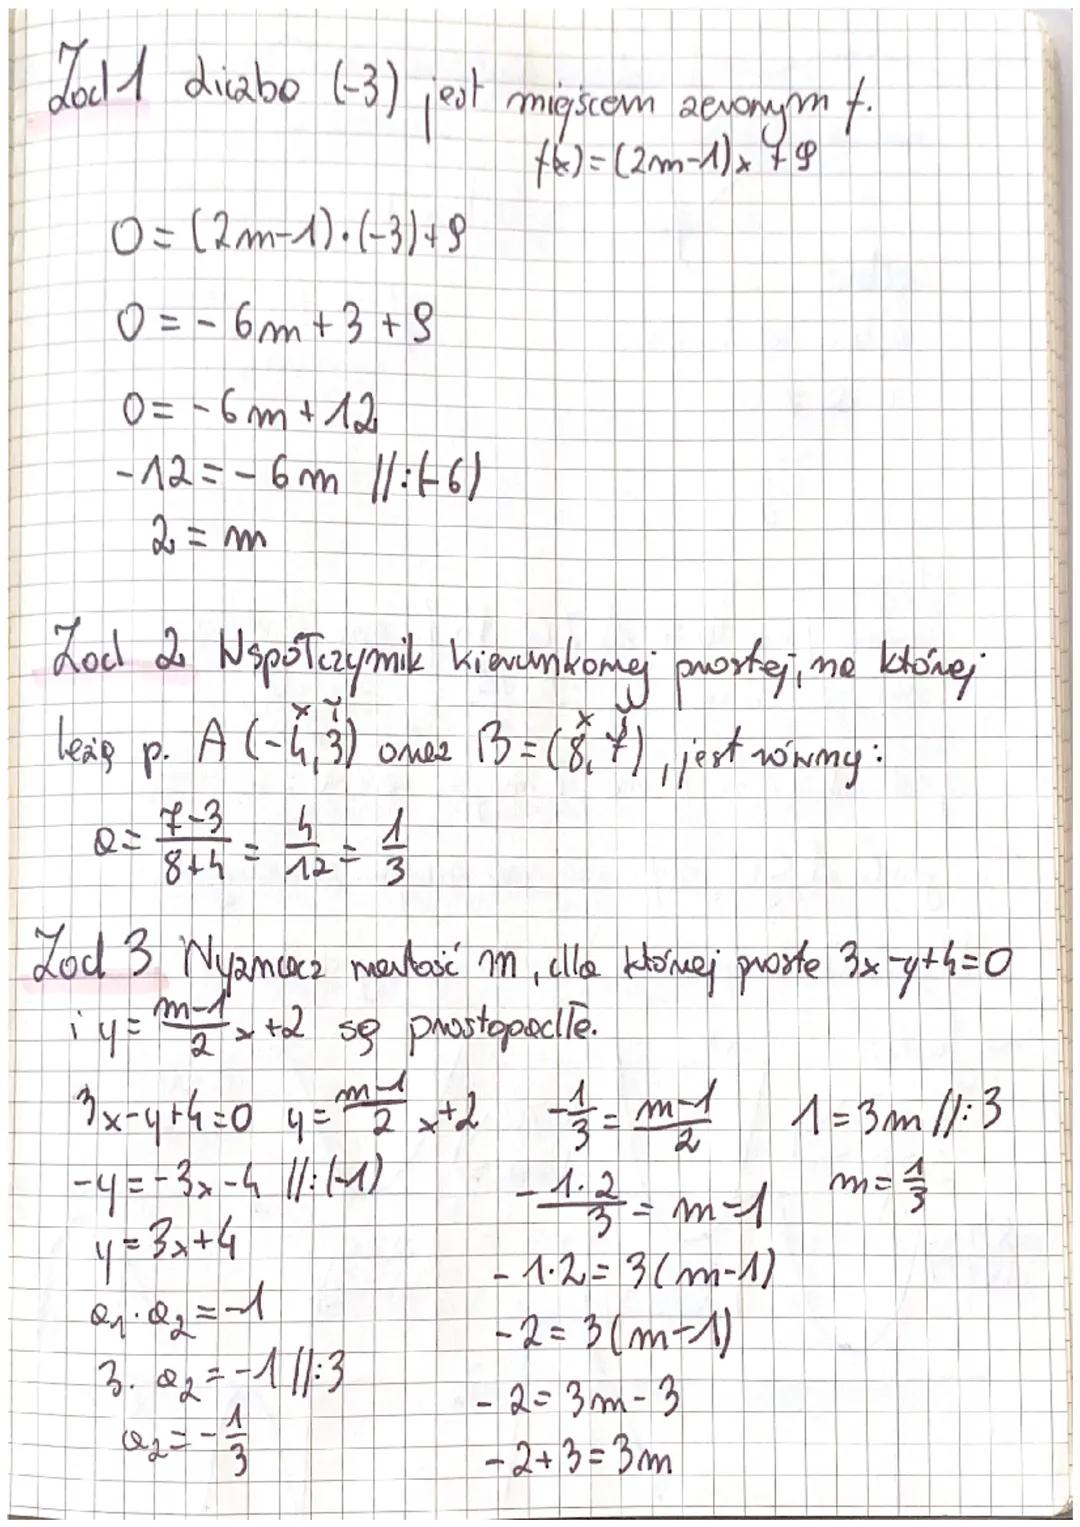 Zad 1 Liczba (-3) jest miejscem zerowym f.
f(x)=(2m-1)x+9
0=(2m-1)·(-3)+9
0=-6m+3+9
0=-6m+12
-12=-6m //:(-6)
2=m
Zad 2 Współczynnik kierunkowej prostej, na której
x y x y
leżą p. A(-4,3) oraz B=(8,7), jest równy:
a=\frac{7-3}{8+4}=\frac{4}{12}=\frac{1}{3}
Zad 3 Wyznacz wartość m, dla której proste 3x-y+4=0
i y=\frac{m-1}{2}x+2 są prostopadłe.
3x-y+4=0 y=\frac{m-1}{2}x+2
-y=-3x-4 //:(-1)
y=3x+4
a₁·a₂=-1
3·a₂=-1 //:3
a₂=-\frac{1}{3}
-\frac{1}{3}=\frac{m-1}{2}
-\frac{1·2}{3}=m-1
-1·2=3(m-1)
-2=3(m-1)
-2=3m-3
-2+3=3m
1=3m //:3
m=\frac{1}{3}